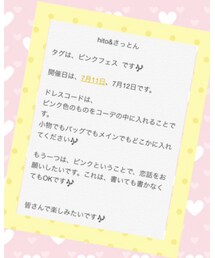 hito&さっとん
タグは、ピンクフェス です🎶
開催日は、7月11日、7月12日です。
ドレスコードは、
ピンク色のものをコーデの中に入れることで
す。
小物でもバッグでもメインでもどこかに入れ
てください🎶
もう一つは、ピンクということで、恋話をお
願いしたいです。これは、書いても書かなく
てもOKです🎶
皆さんで楽しみたいです🎶